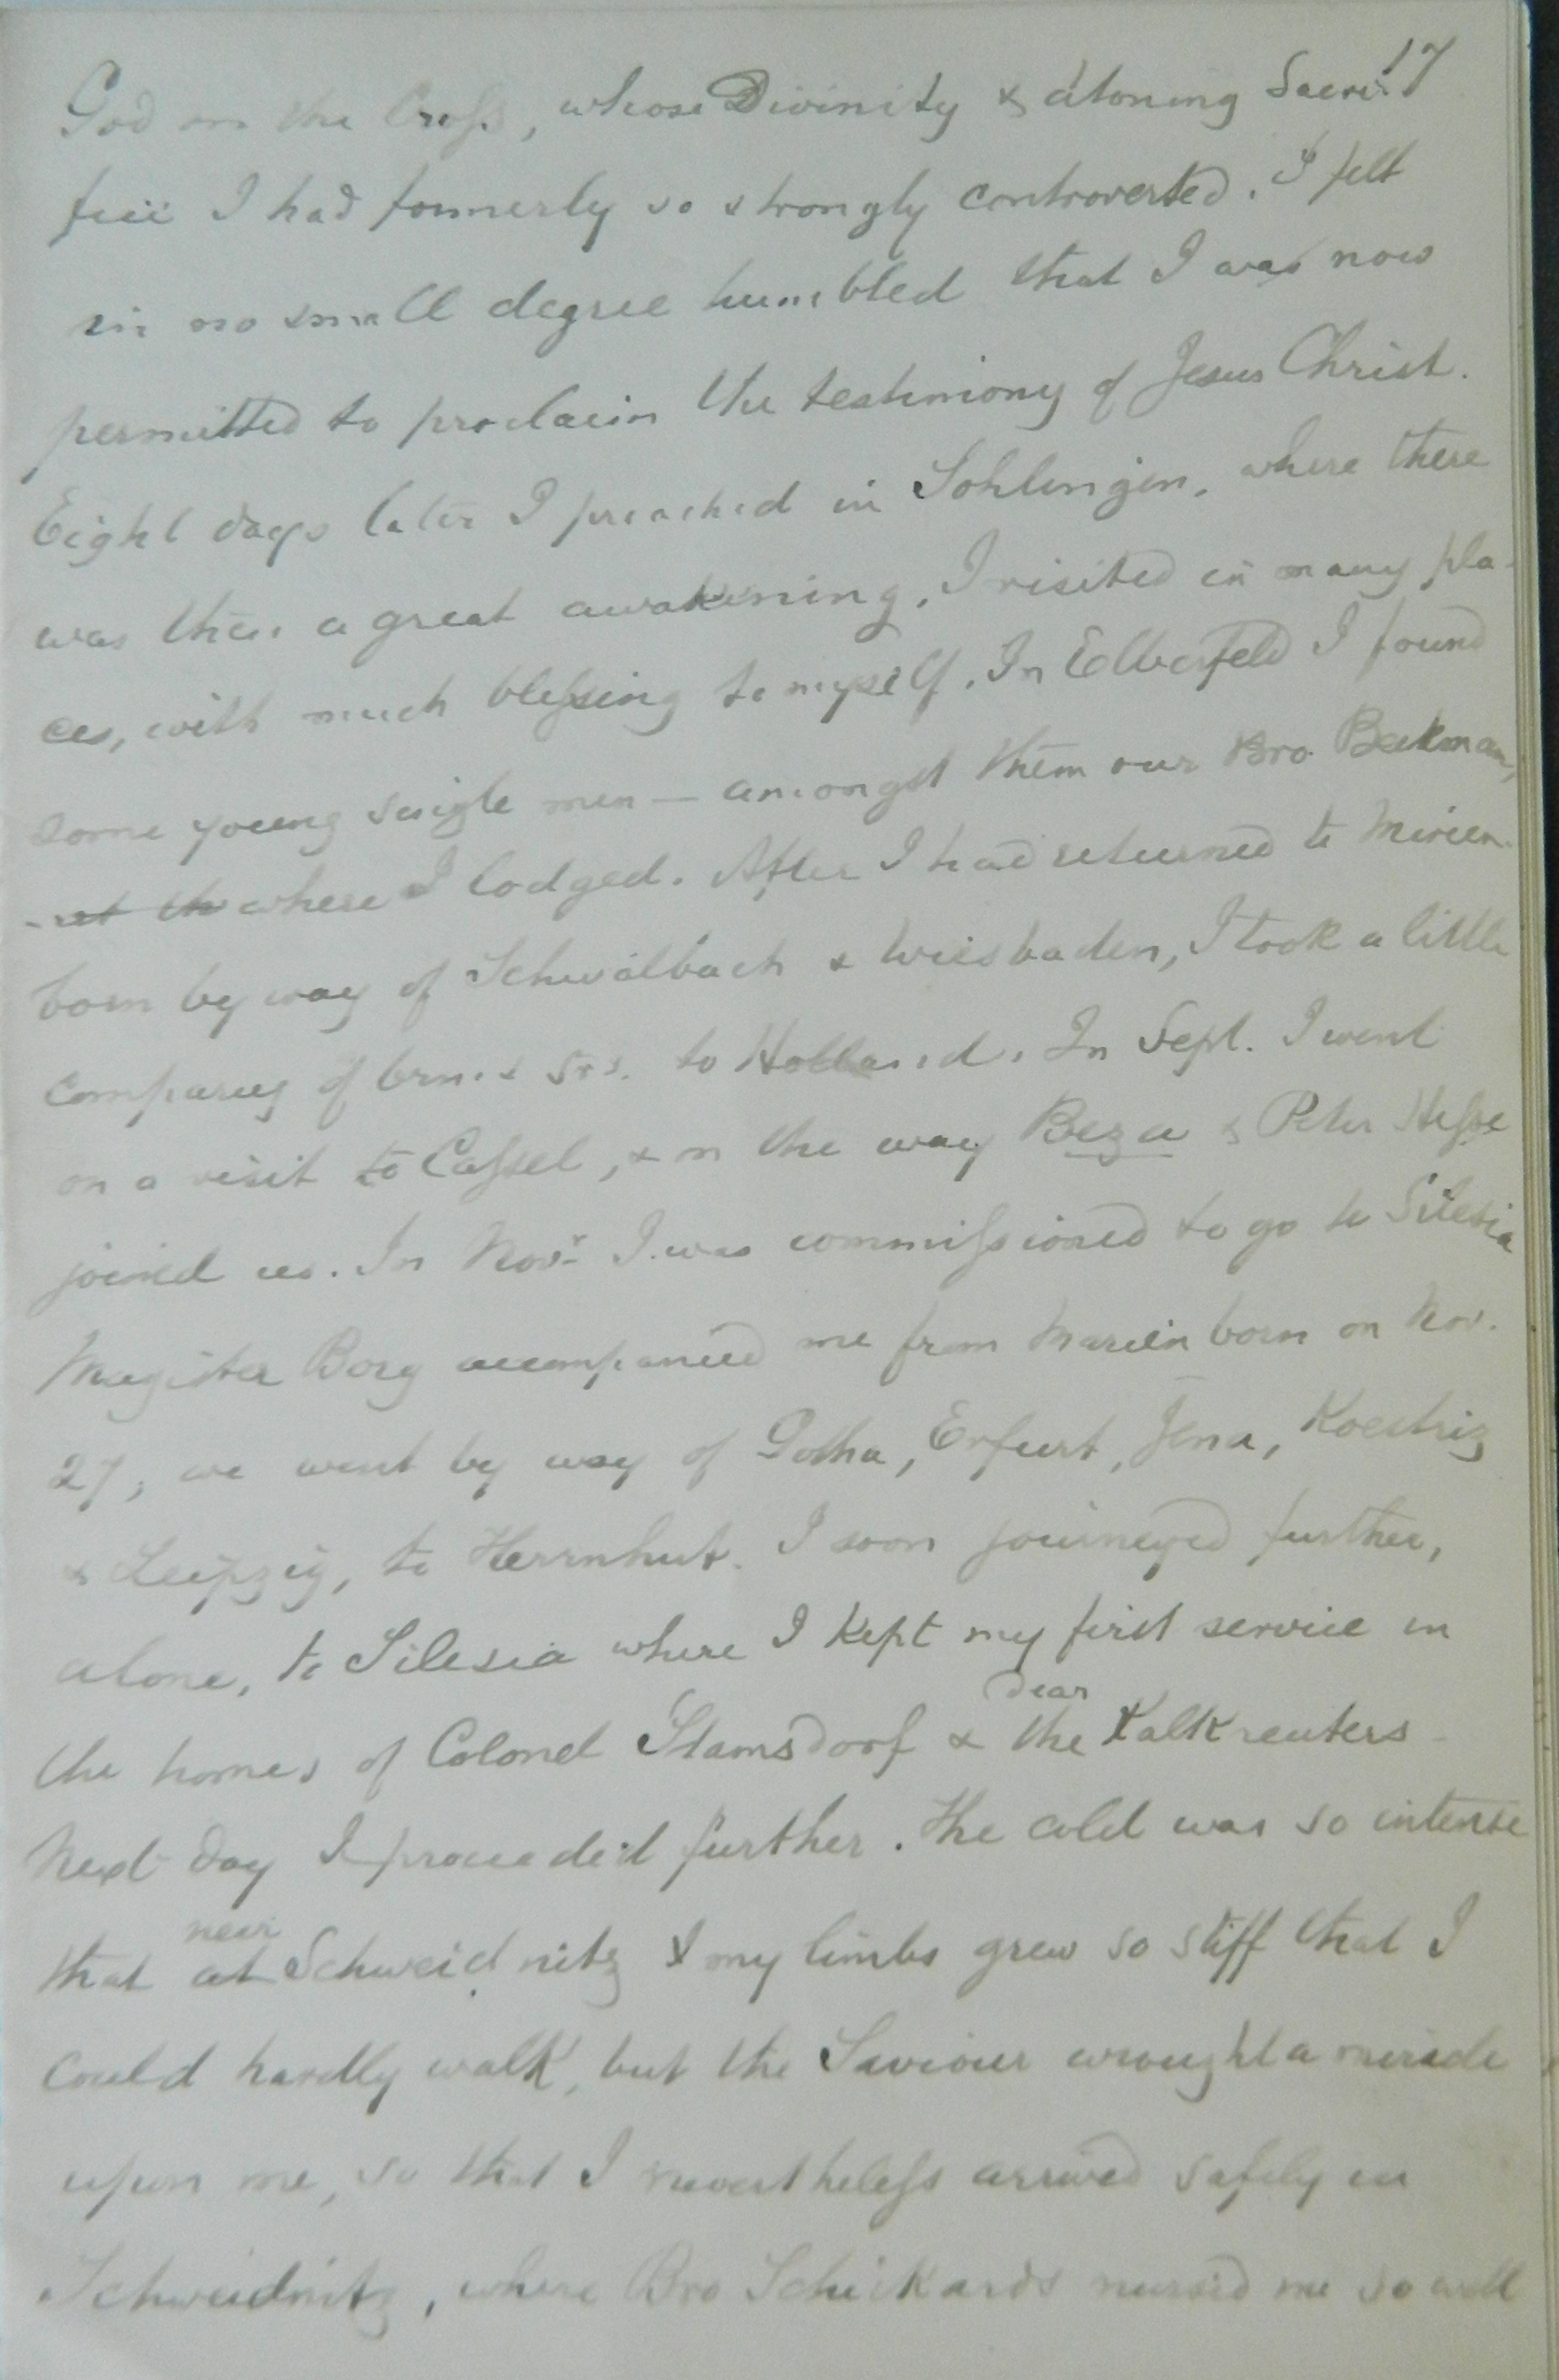 17
God on the Cross, whose Divinity & atoning Sacri-
fice I had formerly so strongly controverted. I felt
in no small degree humbled that I was now
permitted to proclaim the testimony of Jesus Christ.
Eight days later I preached in Sohlingen, where there
was then a great awakening, I visited in many pla-
ces, with much blessing to myself. In Elberfeld I found
some young single men — amongst them our Bro. Beckman,
where I lodged. After I had returned to Marien-
born by way of Schwalbach & Wiesbaden, I took a little
company of brn. & srs. to Holland. In Sept. I went
on a visit to Cassel, & on the way Beza & Peter Hesse
joined us. In Novr. I was commissioned to go to Silesia
Magister Borg accompanied me from Marienborn on Nov.
27, we went by way of Gotha, Erfurt, Jena, Koestriz
& Leipzig, to Herrnhut. I soon journeyed further,
alone, to Silesia where I kept my first service in
dear
the homes of Colonel Stamsdorf & the Kalkreuters
Next day I proceeded further. The cold was so intense
near
that at Schweidnitz my limbs grew so stiff that I
could hardly walk, but the Saviour wrought a miracle
upon me, so that I nevertheless arrived safely in
Schweidnitz, where Bro Schickards nursed me so well